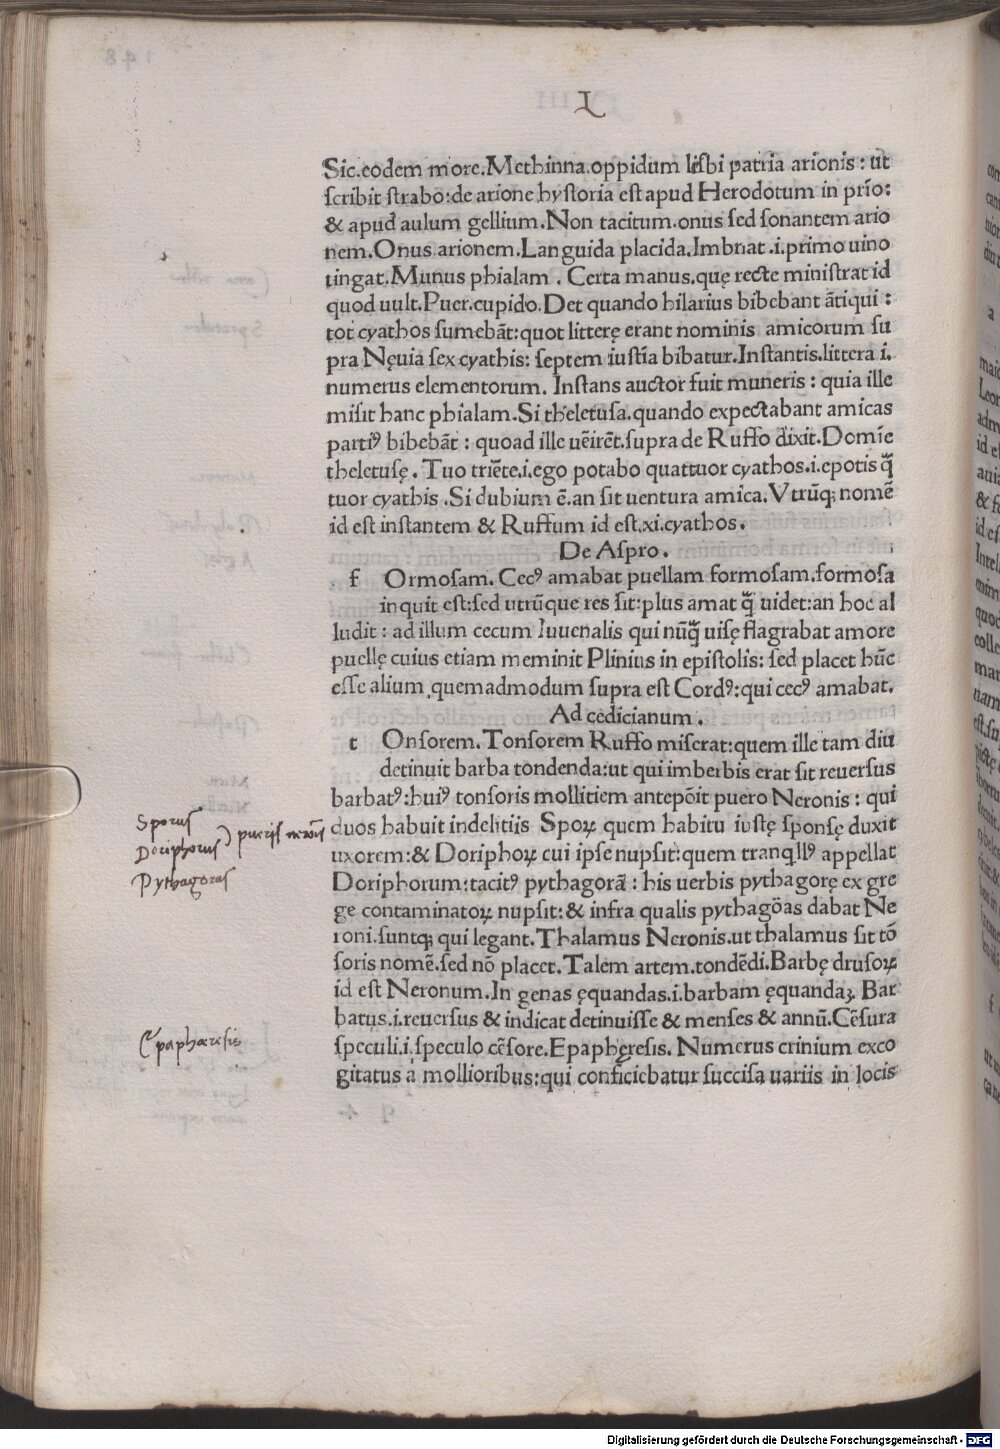 L
Sic.eodem more.Methinna.oppidum lesbi patria arionis: ut
ſcribit ſtrabo:de arione hyſtoria eſt apud Herodotum in prīo:
& apud aulum gellium.Non tacitum.onus ſed ſonantem ario
nem.Onus arionem.Languida placida.Imbuat.i.primo uino
tingat.Munus phialam. Certa manus.quę recte miniſtrat id
quod uult.Puer.cupido.Det quando hilarius bibebant ātiqui:
tot cyathos ſumebāt:quot litterę erant nominis amicorum ſu
pra Nęuia ſex cyathis: ſeptem iuſtīa bibatur.Inſtantis.littera i.
numerus elementorum. Inſtans auctor fuit muneris: quia ille
miſit hanc phialam.Si theletuſa.quando expectabant amicas
partiꝰ bibebāt: quoad ille uēirēt.ſupra de Ruffo dixit.Domīe
theletuſę. Tuo triēte.i.ego potabo quattuor cyathos.i.epotis q̄
tuor cyathis.Si dubium ē.an ſit uentura amica.Vtrūq; nomē
id est inſtantem & Ruffum id eſt.xi.cyathos.
De Aſpro.
f Ormoſam. Cecꝰ amabat puellam formoſam.formoſa
inquit eſt:ſed utrūque res ſit:plus amat q̄ uidet:an hoc al
ludit: ad illum cecum Iuuenalis qui nūq̄ uiſę flagrabat amore
puellę cuius etiam meminit Plinius in epiſtolis: ſed placet hūc
eſſe alium quemadmodum ſupra eſt Cordꝰ:qui cecꝰ amabat.
Ad cedicianum.
t Onſorem.Tonſorem Ruffo miſerat:quem ille tam diu
detinuit barba tondenda:ut qui imberbis erat ſit reuerſus
barbatꝰ:huiꝰ tonſoris mollitiem antepōit puero Neronis: qui
duos habuit indelitiis Spoꝝ quem habitu iuſtę ſponſę duxit
uxorem:& Doriphoꝝ cui ipſe nupſit:quem tranq̄llꝰ appellat
Doriphorum:tacitꝰ pythagorā: his uerbis pythagorę ex gre
ge contaminatoꝝ nupſit:& infra qualis pythagōas dabat Ne
roni.ſuntq; qui legant.Thalamus Neronis.ut thalamus ſit tō
ſoris nomē.ſed nō placet.Talem artem.tondēdi.Barbę druſoꝝ
id eſt Neronum.In genas ęquandas.i.barbam ęquandaꝫ. Bar
batus.i.reuerſus & indicat detinuiſſe & menſes & annū.Cēſura
ſpeculi.i.ſpeculo cēſore.Epapheręſis. Numerus crinium exco
gitatus a mollioribus:qui conficiebatur ſucciſa uariis in locis
Sporus
Doriphorus
Pythagoras
pueris neronis
Epaphæresis
Digitalisierung gefördert durch die Deutsche Forschungsgemeinschaft - DFG